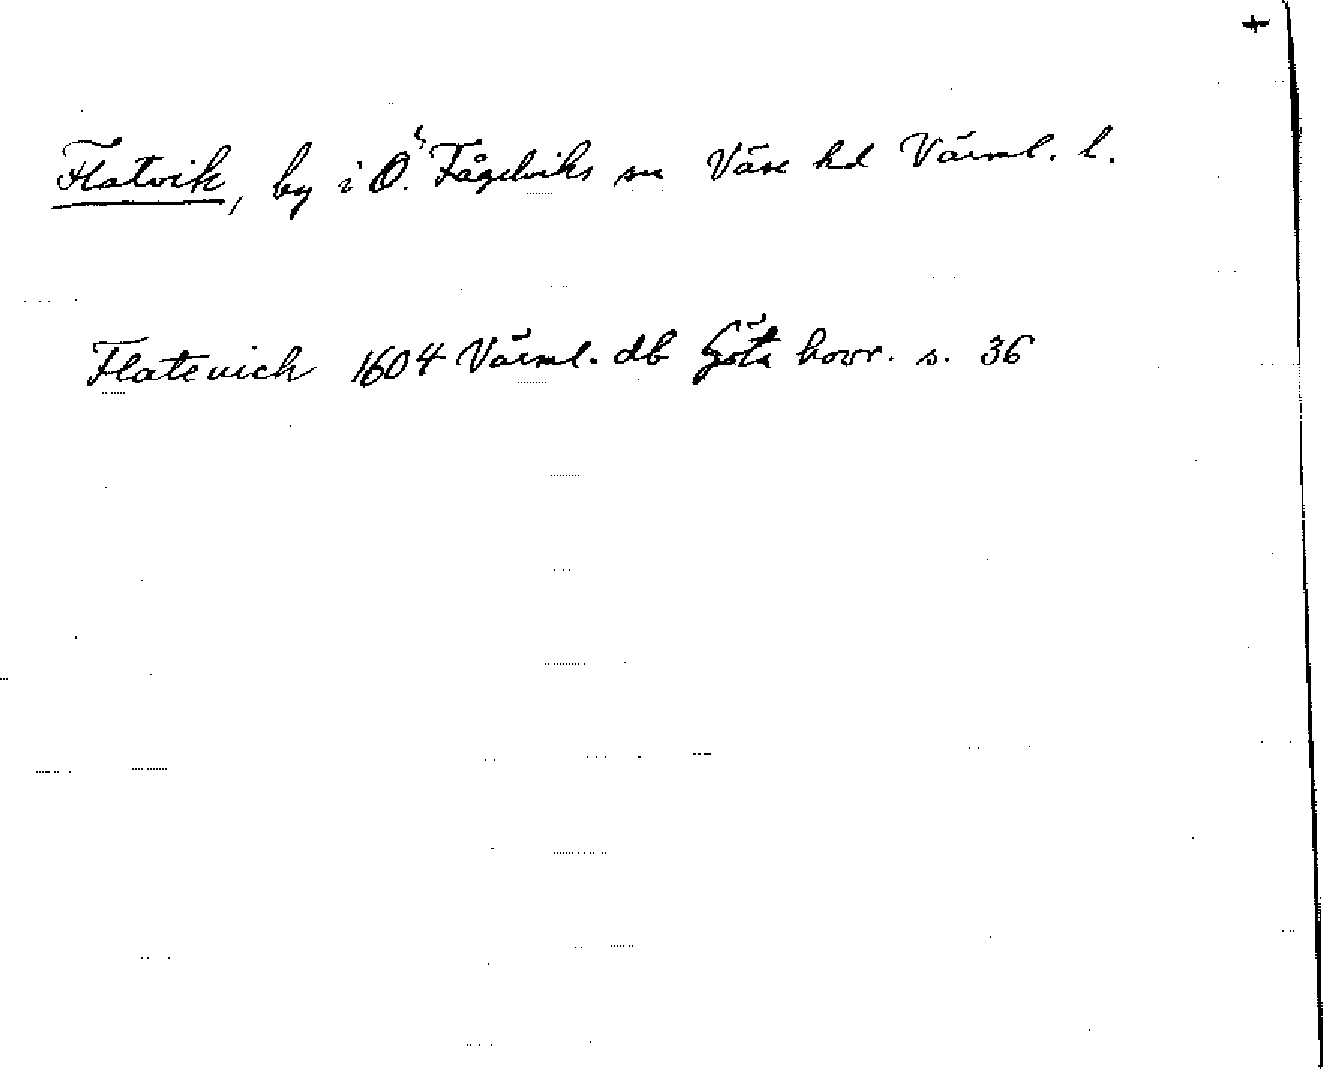 +
Flatvik, by i Ö. Fågelviks sn Väse hd Värml. l.
Flatevich 1604 Värml. db Göta hovr. s. 36